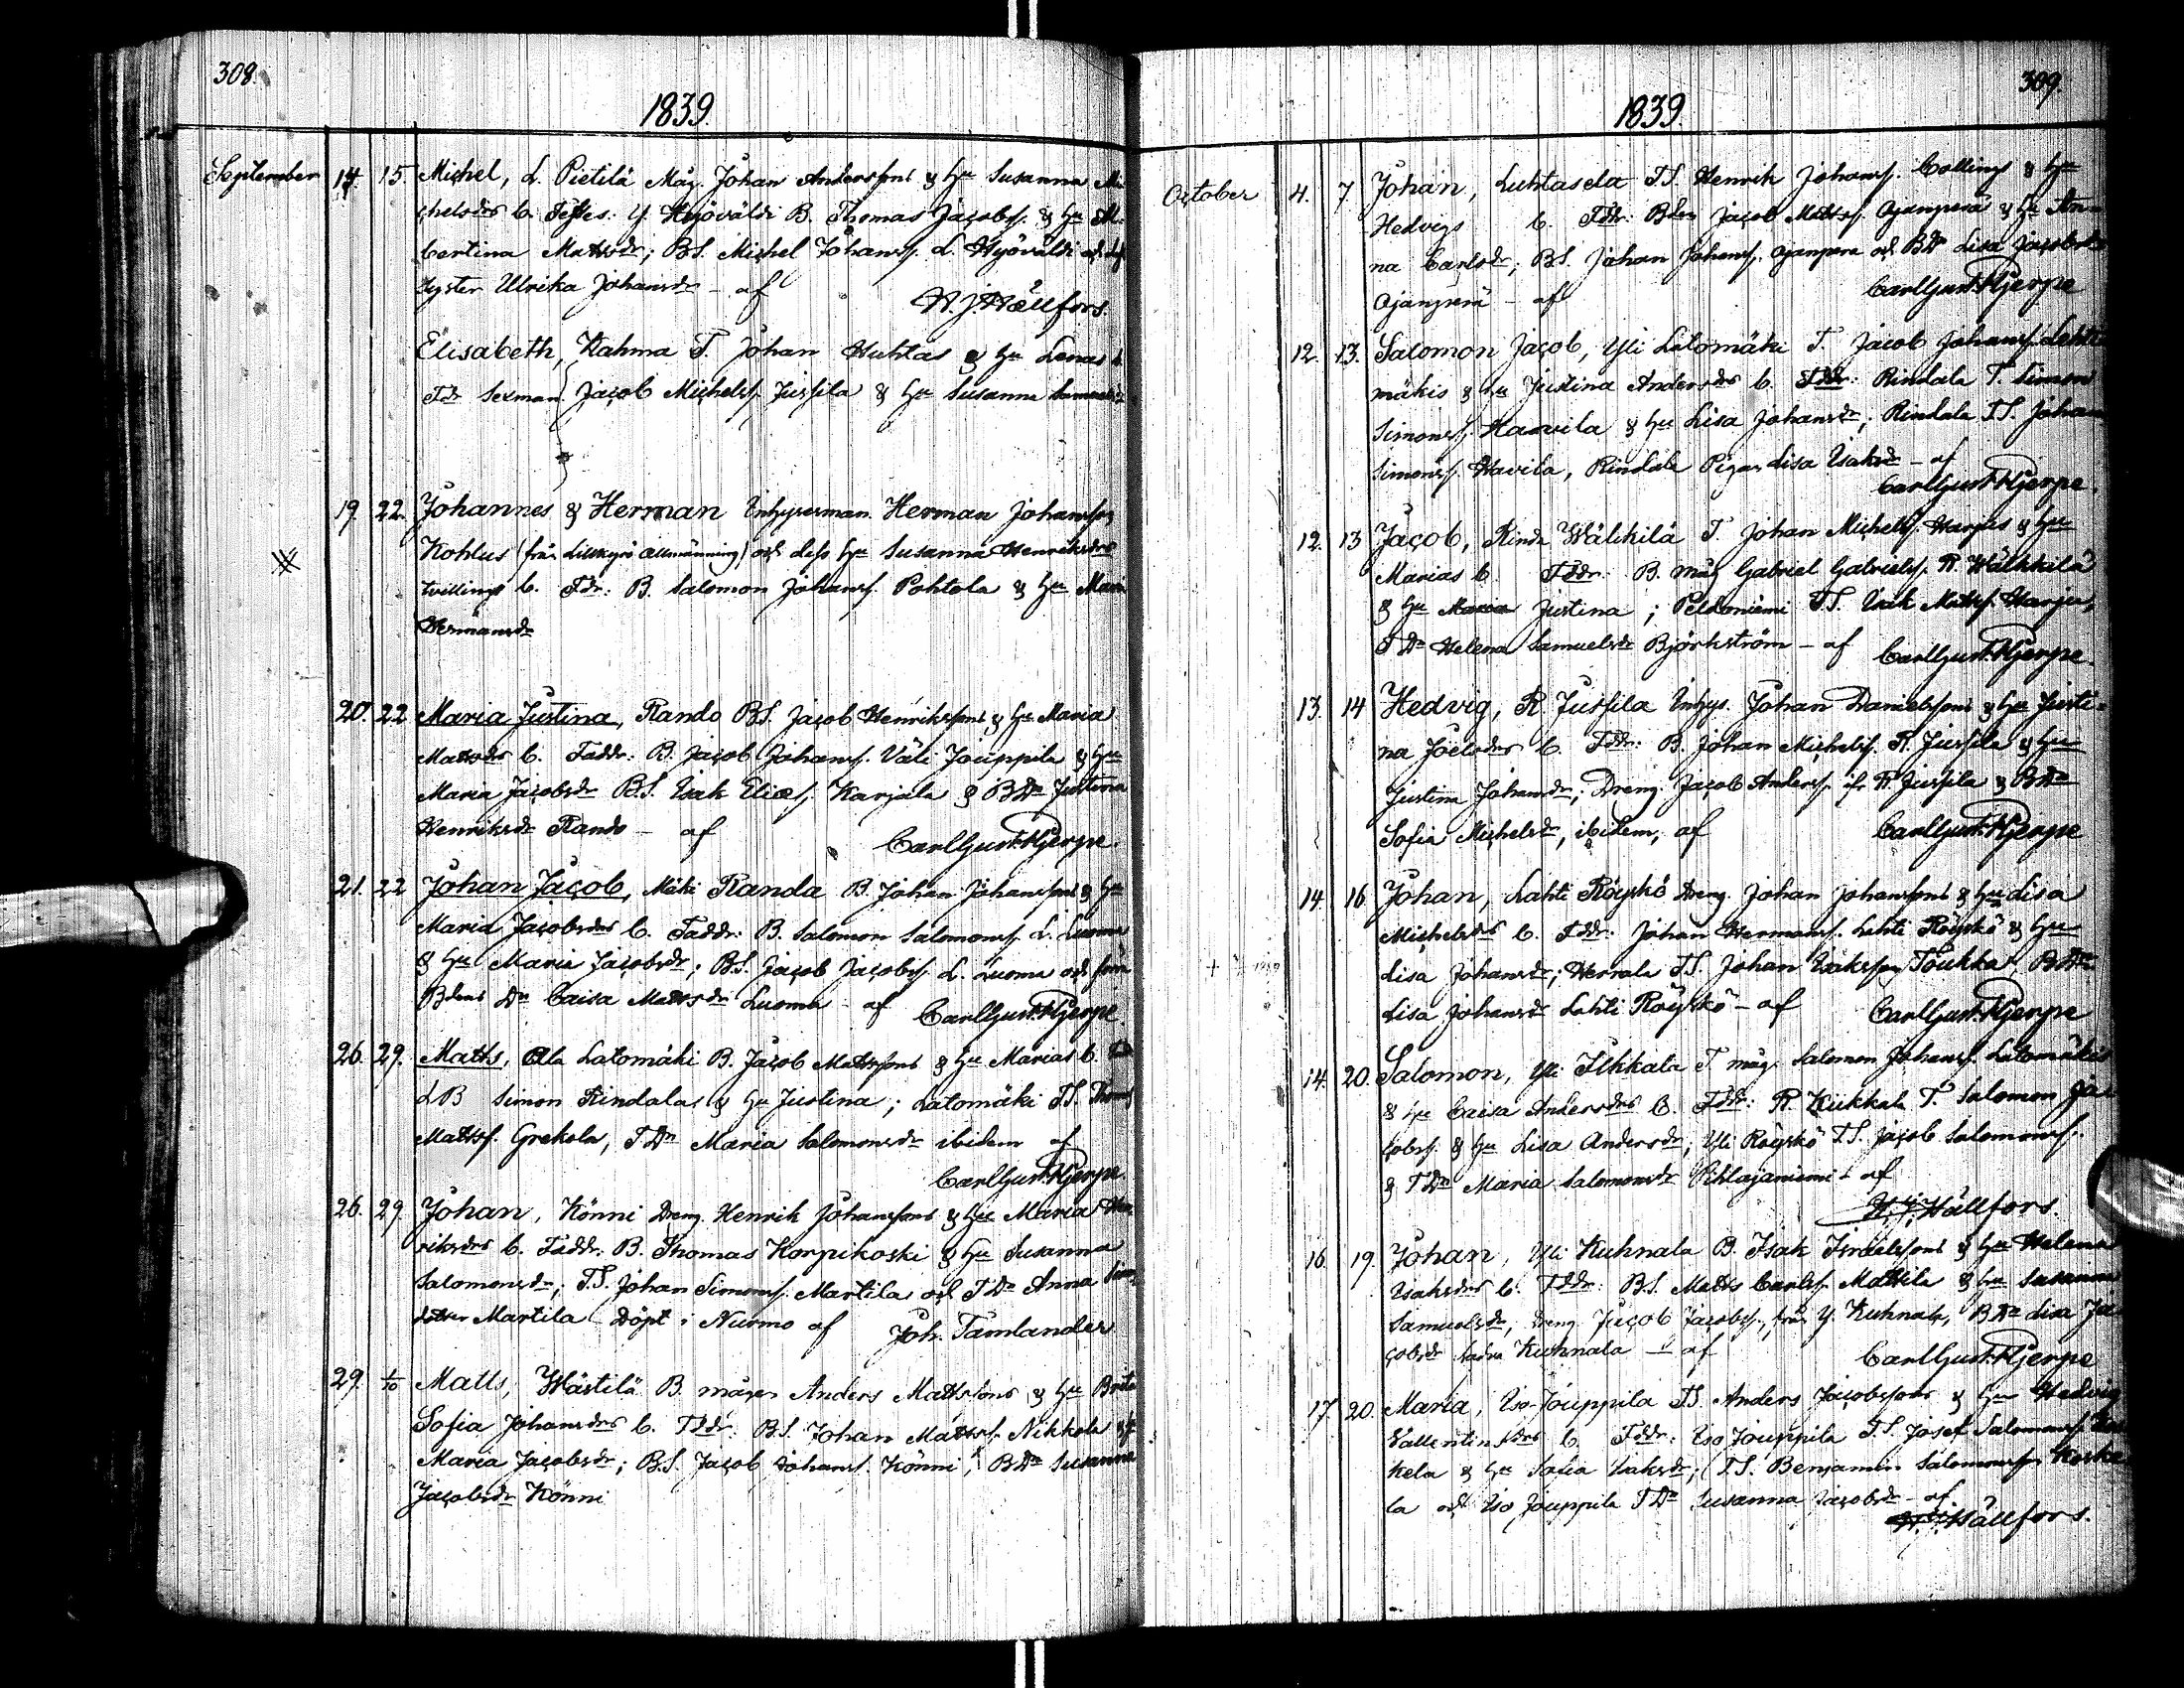 308.
1839.
September 14. 15 Michel, L. Pietilä Måg. Johan Anderssons & hu Susanna Mi
chelsdrs b. Testes: Y. Hyövälti B. Thomas Jacobss. & hu Al
bertina Mattsdr; BS. Michel Johanss. L. Hyövälti och
Syster Ulrika Johansdr - af H. J. Hällfors.
Elisabeth, Kahma T. Johan Huhtas & hu Lenas b.
Fdr Sexman. Jacob Michelss. Jussila & hu Susanna Samuelsdr
19. 22. Johannes & Herman Inhysesman. Herman Johansson
Kohlus (från Lillkyrö allmänning) och dess hu Susanna Henriksdrs
tvillings b. Fdr: B. Salomon Johanss. Pohtola & hu Maria
Hermansdr
20. 22 Maria Justina, Rando BS. Jacob Henrikssons & hu Maria
Mattsdrs b. Faddr: B. Jacob Johanss. Väli Jouppila & hu
Maria Jacobsdr BS. Isak Eliæs. Karjala & BDr Justina
Henriksdr Rando - af Carl Gust. Hjerpe.
21. 22 Johan Jacob, Mäki Randa B. Johan Johanssons & hu
Maria Jacobsdrs b. Faddr: B. Salomon Salomonss. L. Luoma
& hu Maria Jacobsdr; BS. Jacob Jacobss. L. Luoma och
Bdens Dr Caisa Mattsdr Luoma - af Carl Gust. Hjerpe.
26. 29. Matts, Ala Latomäki B. Jacob Mattssons & hu Marias b.
LB Simon Rindalas & hu Justina; Latomäki TS. Thomas
Mattss. Grekola, TDr Maria Salomonsdr ibidem af
Carl Gust. Hjerpe.
26. 29. Johan, Könni Dreng. Henrik Johanssons & hu Maria Hen
riksdrs b. Faddr: B. Thomas Korpikoski & hu Susanna
Salomonsdr; T.S. Johan Simonss. Martila och TDr Anna Simons
dotter Martila Döpt i Nurmo af Joh. Tamlander
29. 1/10 Matts, Wästilä B. mågen Anders Mattssons & hu Brita
Sofia Johansdrs b. Fddr: BS. Johan Mattss. Nikkola &
Maria Jacobsdr; B.S. Jacob Johanss. Könni, BDr Susanna
Jacobsdr Könni
309.
1839.
October 4. 7. Johan, Luhtasela TS. Henrik Johanss. Collings & hu
Hedvigs b. Fddr: Bden Jacob Mattss. Ojanperä & hu An-
na Carlsdr; BS. Johan Johanss. Ojanpera och BDr Lisa Jacobsdr
Ojanperä - af Carl Gust. Hjerpe
12. 13. Salomon Jacob, Yli Latomäki T. Jacob Johanss. Lehti
mäkis & hu Justina Andersdrs b. Fddr: Rindala T. Simon
Simonss. Haavila & hu Lisa Johansdr; Rindala TS. Johan
Simonss. Havila, Rindala Pigan Lisa Isaksdr - af
Carl Gust. Hjerpe.
12. 13 Jacob, Rinda Wälkkilä T. Johan Michelss. Harjus & hu
Marias b. Fddr: B. måg Gabriel Gabrielss. R. Wälkkilä
& hu Justina; Peldoniemi TS. Isak Mattss. Harju,
TDr Helena Samuelsdr Björkström - af Carl Gust. Hjerpe.
13. 14 Hedvig, R. Jussila Inhys. Johan Danielssons & hu Justi-
na Joelsdrs b. Fddr: B. Johan Michelss. R. Jussila & hu
Justina Johansdr; Dreng. Jacob Anderss. ifr. R. Jussila & BDr
Sofia Michelsdr, ibidem, af Carl Gust. Hjerpe
14. 16. Johan, Lahti Röyskö Dreng. Johan Johanssons & hu Lisa
Michelsdrs b. Fddr: Johan Hermanss. Lahti Röyskö & hu
Lisa Johansdr; Herrala TS. Johan Isaksson Toukka, BDr
Lisa Johansdr Lahti Röyskö - af Carl Gust. Hjerpe
14. 20. Salomon, Yli Ilkkala T. måg. Salomon Johanss. Latomäkis
& hu Caisa Andersdrs b. Fddr: R. Kiikkala T. Salomon Ja-
cobss. & hu Lisa Andersdr; Yli Röyskö TS. Jacob Salomonss.
& TDr Maria Salomonsdr Pihlajaniemi - af
H. J. Hällfors.
16. 19. Johan, Yli Kuhnala B. Isak Israelssons & hu Helena
Isaksdrs b. Fddr: BS. Matts Carlss. Mattila & hu Susanna
Samuelsdr, Dreng Jacob Jacobss., från Y. Kuhnala, BDr Lisa Ja
cobsdr Kuhnala - af Carl Gust. Hjerpe
17. 20. Maria, Iso-Jouppila TS. Anders Jacobssons & hu Hedvig
Vallentinsdrs b. Fddr: Iso Jouppila T.S. Josef Salomonss. Kos
kela & hu Sofia Isaksdr; TS. Benjamin Salomonsson Koske
la och Iso Jouppila TDr Susanna Jacobsdr - af
H. J. Hällfors.